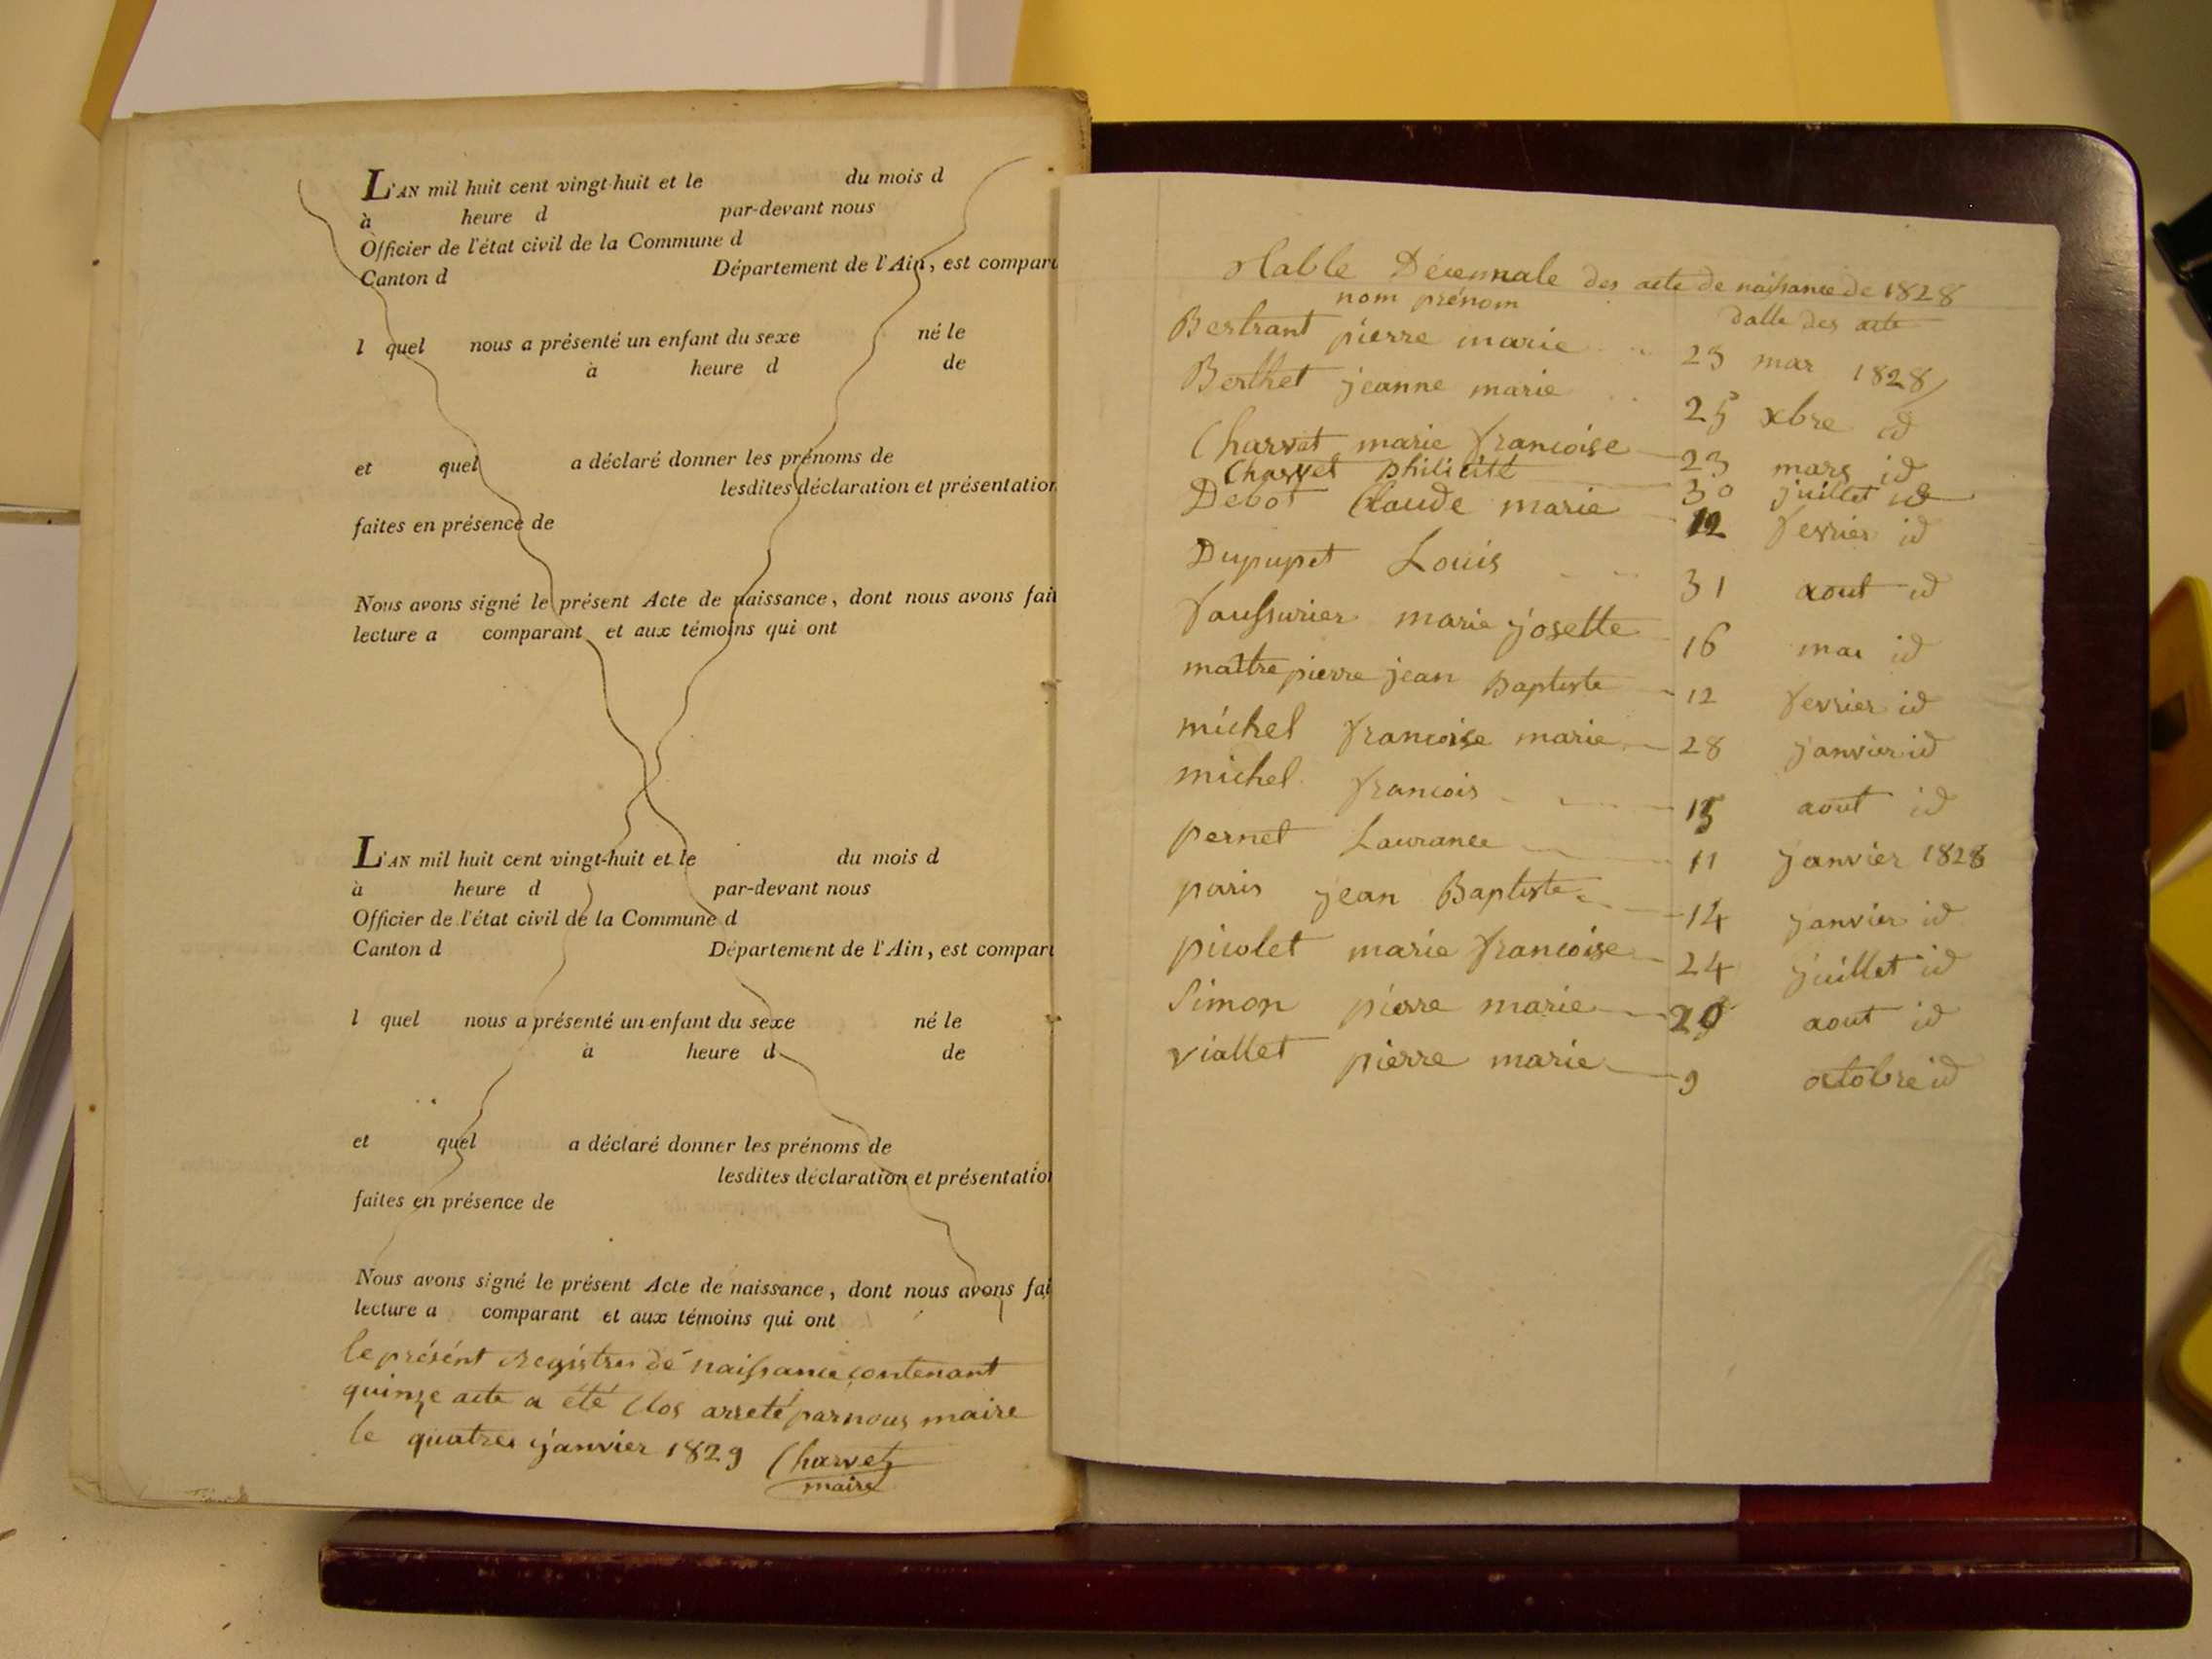 L'AN mil huit cent vingt-huit et le du mois d
à heure d par-devant nous
Officier de l'état civil de la Commune d
Canton d Département de l'Ain, est compar
l quel nous a présenté un enfant du sexe né le
à heure d de
et quel a déclaré donner les prénoms de
lesdites déclaration et présentation
faites en présence de
Nous avons signé le présent Acte de naissance, dont nous avons fait
lecture a comparant et aux témoins qui ont
L'AN mil huit cent vingt-huit et le du mois d
à heure d par-devant nous
Officier de l'état civil de la Commune d
Canton d Département de l'Ain, est compar
l quel nous a présenté un enfant du sexe né le
à heure d de
et quel a déclaré donner les prénoms de
lesdites déclaration et présentation
faites en présence de
Nous avons signé le présent Acte de naissance, dont nous avons fai
lecture a comparant et aux témoins qui ont
le présént registre dé naissance contenant
quinze acte a été clos arreté par nous maire
le quatres janvier 1829 Charvet
maire
Table Décennale des acte de naissance de 1828
nom prénom datte des acte
Bertrant pierre marie 23 mar 1828
Berthet jeanne marie 25 xbre id
Charvet marie francoise 23 mars id
Charvet philicité 30 juillet id
Debot Claude marie 12 fevrier id
Dupupet Louis 31 aout id
faussurier marie josette 16 mai id
maitrepierre jean Baptiste 12 fevrier id
michel francoise marie 28 janvier id
michel francois 15 aout id
pernet Laurance 11 janvier 1828
paris jean Baptiste 14 janvier id
picolet marie francoise 24 juillet id
Simon pierre marie aout id
viallet pierre marie 9 octobre id